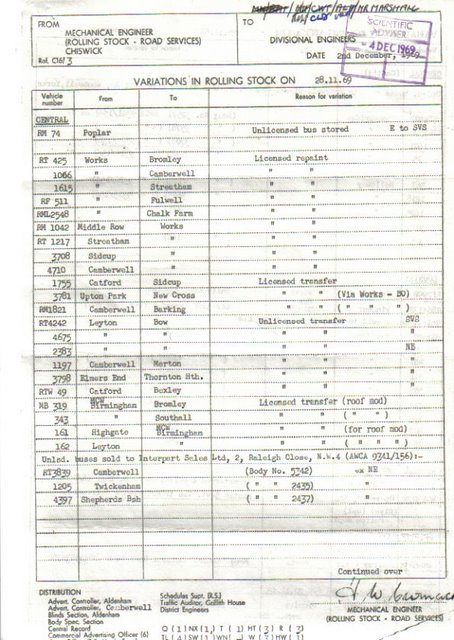 FROM
MECHANICAL ENGINEER
(ROLLING STOCK - ROAD SERVICES)
CHISWICK
Ref. C16/3
TO
DIVISIONAL ENGINEERS
DATE 2nd December, 1969.
SCIENTIFIC
ADVISER
4 DEC 1969
VARIATIONS IN ROLLING STOCK ON 28.11.69
Vehicle number From To Reason for variation
CENTRAL
RM 74 Poplar Unlicensed bus stored E to SVS
RT 425 Works Bromley Licensed repaint
1066 " Camberwell " "
1615 " Streatham " "
RF 511 " Fulwell " "
RML2548 " Chalk Farm " "
RM 1042 Middle Row Works " "
RT 1217 Streatham " " "
3708 Sidcup " " "
4710 Camberwell " " "
1755 Catford Sidcup Licensed transfer
3781 Upton Park New Cross " " (Via Works - BO)
RM1821 Camberwell Barking " " ( " " " )
RT4242 Leyton Bow Unlicensed transfer SVS
4675 " " " " "
2383 " " " " NE
1197 Camberwell Merton " " "
3798 Elmers End Thornton Hth. " " "
RTW 49 Catford Bexley " " "
MB 319 MCW Birmingham Bromley Licensed transfer (roof mod)
343 " Southall " " ( " " )
161 Highgate MCW Birmingham " " (for roof mod)
162 Leyton " " " ( " " " )
Unlsd. buses sold to Interport Sales Ltd, 2, Raleigh Close, N.W.4 (AWCA 9341/156):-
RT3839 Camberwell (Body No. 5742) ex NE
1205 Twickenham ( " " 2435) "
4397 Shepherds Bsh ( " " 2437) "
Continued over
MECHANICAL ENGINEER
(ROLLING STOCK - ROAD SERVICES)
DISTRIBUTION
Advert. Controller, Aldenham
Advert. Controller, Camberwell
Blinds Section, Aldenham
Body Spec. Section
Central Record
Commercial Advertising Officer (6)
Schedules Supt. (R.S.)
Traffic Auditor, Griffith House
District Engineers